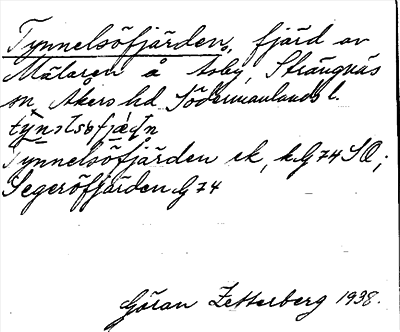 Tynnelsöfjärden, fjärd av
Mälaren å Aspy, Strängnäs
sn, Åkers hd Södermanlands l.
Tynnelsöfjärden ek, k. G 74 SO;
Segeröfjärden G 74
Göran Zetterberg 1938.